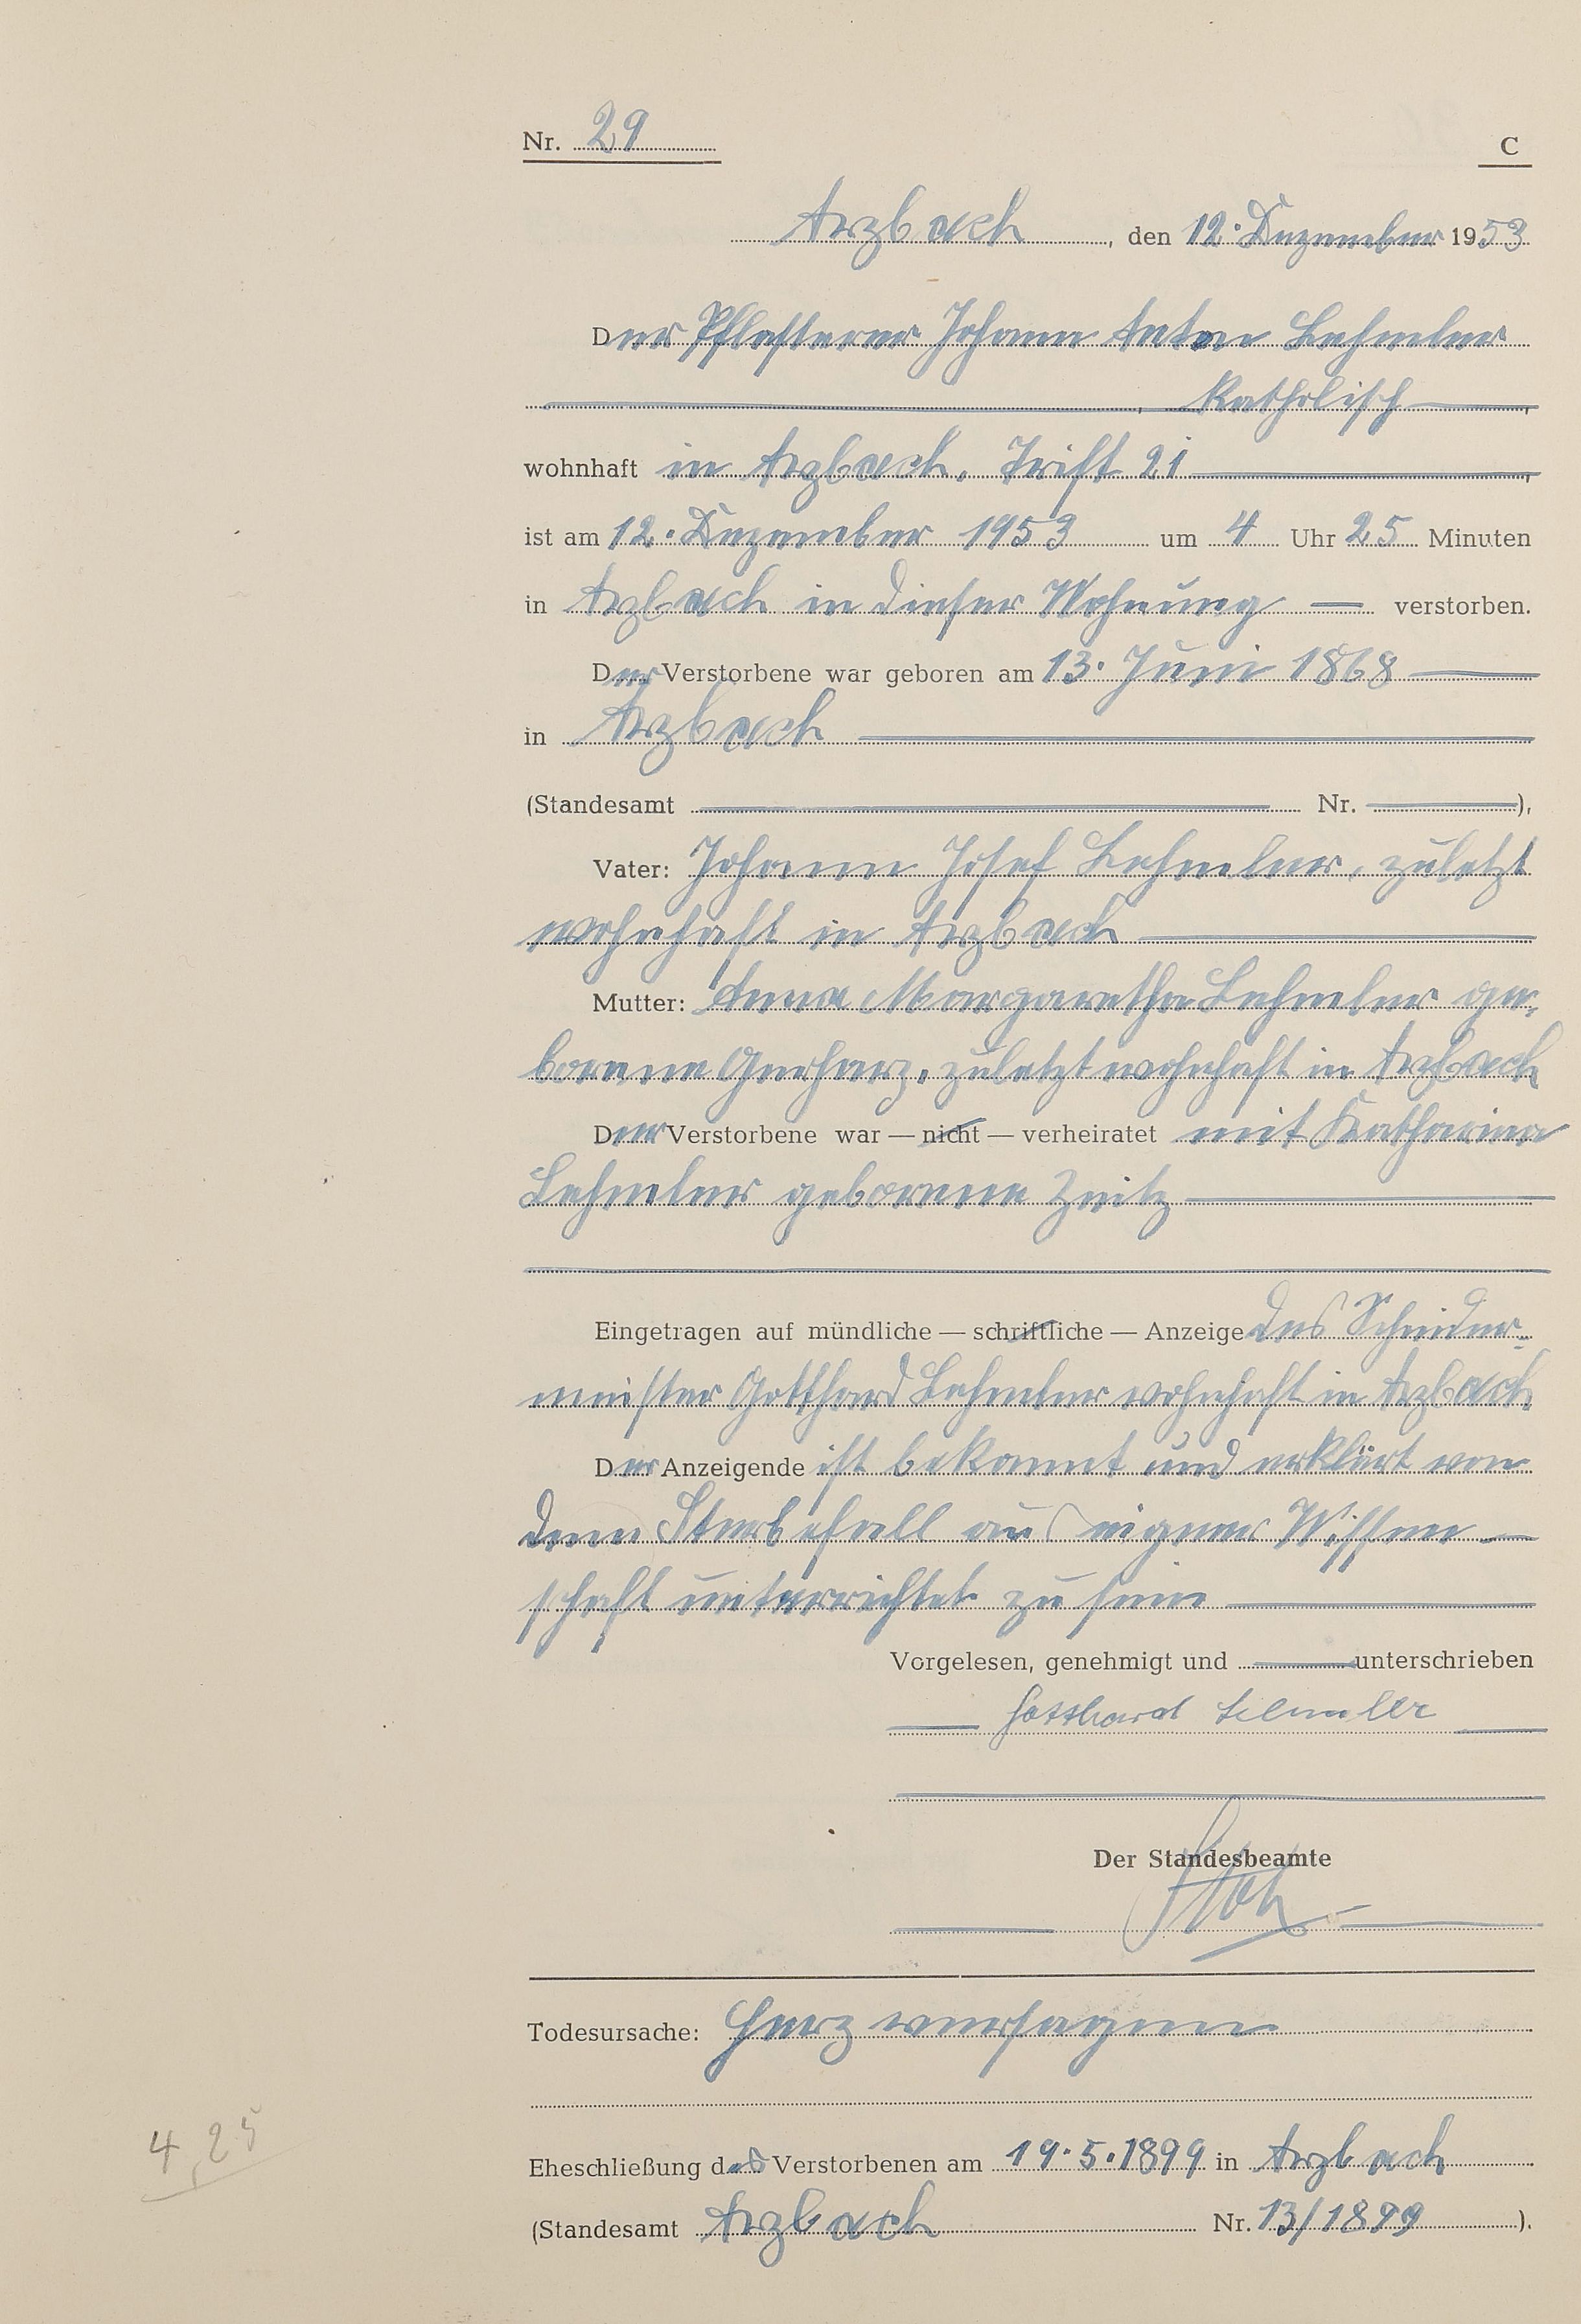 Nr. 29 C
Arzbach, den 12. Dezember 1953
Der Pflasterer Johann Anton Lehmler
, katholisch
wohnhaft in Arzbach, Trift 21
ist am 12. Dezember 1953 um 4 Uhr 25 Minuten
in Arzbach in dieser Wohnung — verstorben.
Der Verstorbene war geboren am 13. Juni 1868
in Arzbach
(Standesamt Nr. ),
Vater: Johann Josef Lehmler, zuletzt
wohnhaft in Arzbach
Mutter: Anna Margaretha Lehmler ge-
borene Gerharz, zuletzt wohnhaft in Arzbach
Der Verstorbene war — nicht — verheiratet mit Katharina
Lehmler geborene Zeitz
Eingetragen auf mündliche — schriftliche — Anzeige des Schneider-
meister Gotthard Lehmler wohnhaft in Arzbach
Der Anzeigende ist bekannt und erklärt von
dem Sterbefall aus eigner Wissen —
schaft unterrichtet zu sein
Vorgelesen, genehmigt und unterschrieben
Gotthard Lehmler
Der Standesbeamte
Todesursache: Herzversagen
4 25
Eheschließung des Verstorbenen am 19.5.1899 in Arzbach
(Standesamt Arzbach Nr. 13/1899 ).